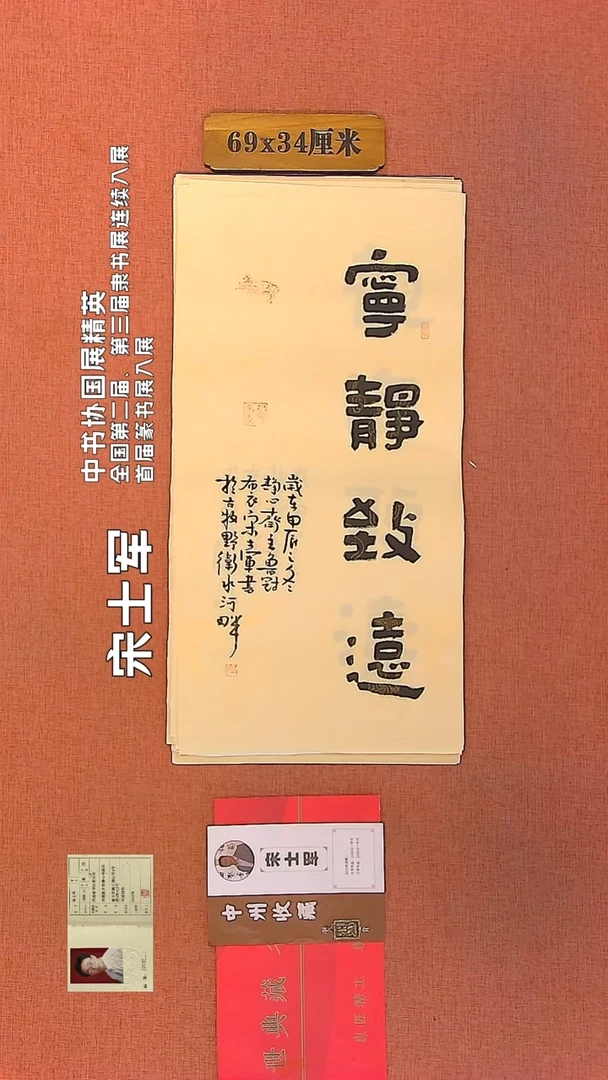 69x34厘米
寧靜致遠
歲在甲辰之冬
靜心齋主魯封
布衣宋士軍書
於古牧野衛水河畔
中书协国展精英
全国第二届、第三届隶书展连续入展
首届篆书展入展
宋士军
宋士军
中州收藏
世典藏
良匠精工